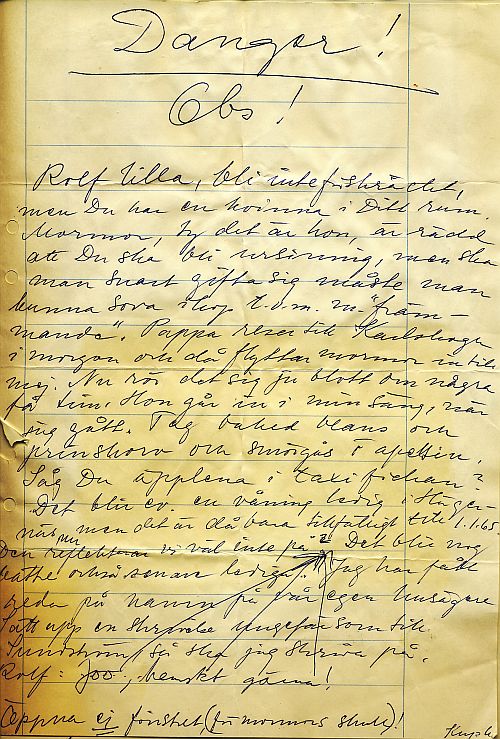 Danger!
Obs!
Rolf lilla, bli inte förskräckt,
men Du har en kvinna i Ditt rum.
Mormor, ty det är hon, är rädd
att Du ska bli ursinnig, men ska
man snart gifta sig måste man
kunna sova ihop t.o.m. m. "främ-
mande". Pappa reser till Karlskoga
i morgon och då flyttar mormor in till
mej. Nu rör det sig ju blott om några
få tim. Hon går in i min säng, när
jag gått. Tag baked beans och
prinskorv och smörgås o apelsin.
Såg Du äpplena i taxifickan?
Det blir ev. en våning ledig i
men det är då bara tillfälligt till 1.1.65.
Den reflekterar vi väl inte på? Det blir nog
bättre också senare lediga. Jag har fått
reda på namn på vår egen husägare
Sätt upp en skrivelse ungefär som till
Sundström, så ska jag skriva på.
Rolf: Joo, hemskt gärna!
Öppna ej fönstret, (för mormors skull)!